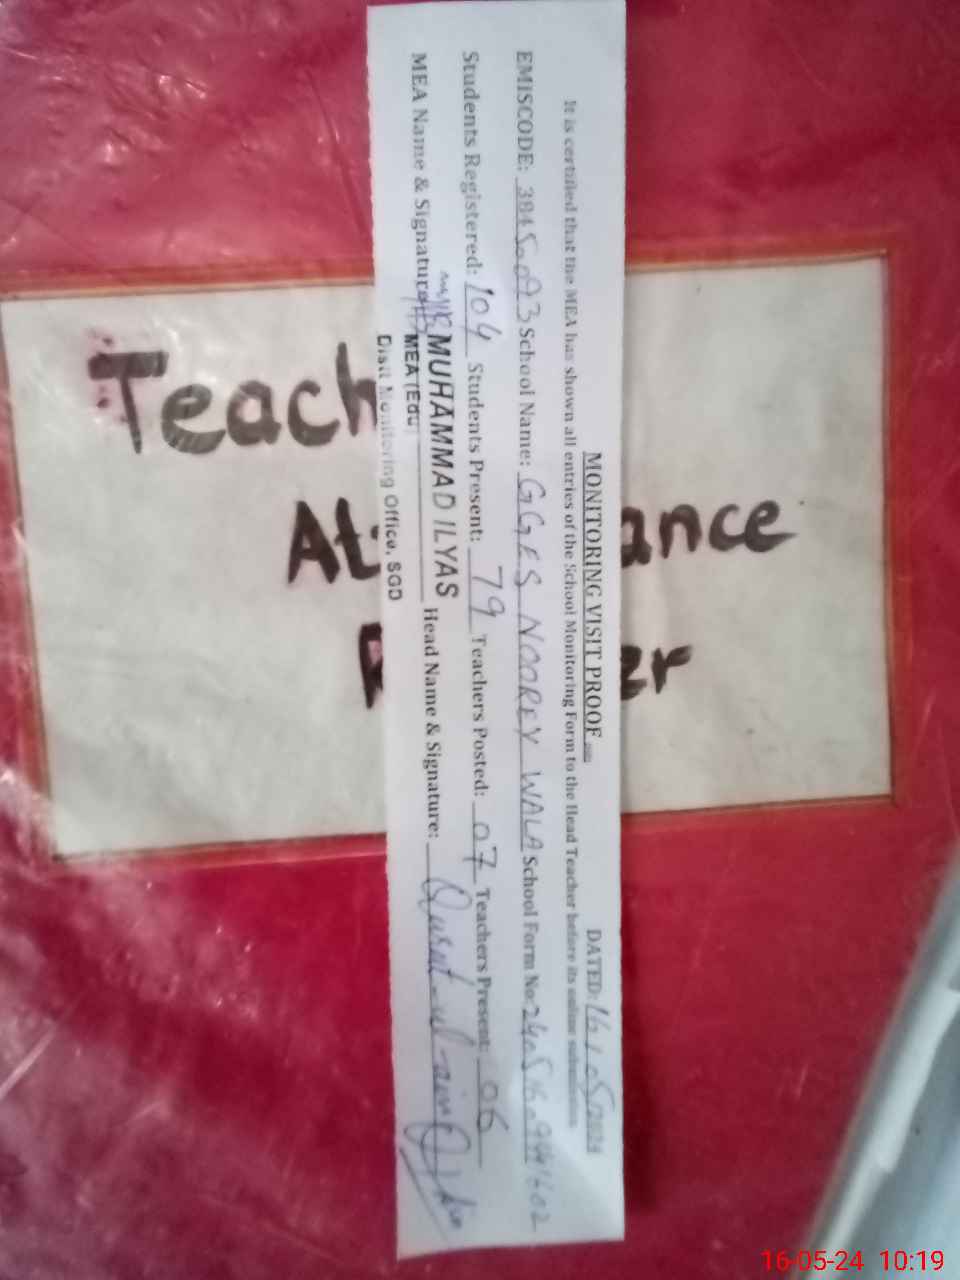 MONITORING VISIT PROOF DATED: 16/05/2024
It is certified that the MEA has shown all entries of the School Monitoring Form to the Head Teacher before its online submission
EMISCODE: School Name: GGES NOOREY WALA School Form No:
Students Registered: 104 Students Present: 79 Teachers Posted: 07 Teachers Present: 06
MEA Name & Signature: MUHAMMAD ILYAS Head Name & Signature: Qurat-ul-ain
MEA (Edu)
Distt Monitoring Office, SGD
Teach
At ance
er
16-05-24 10:19